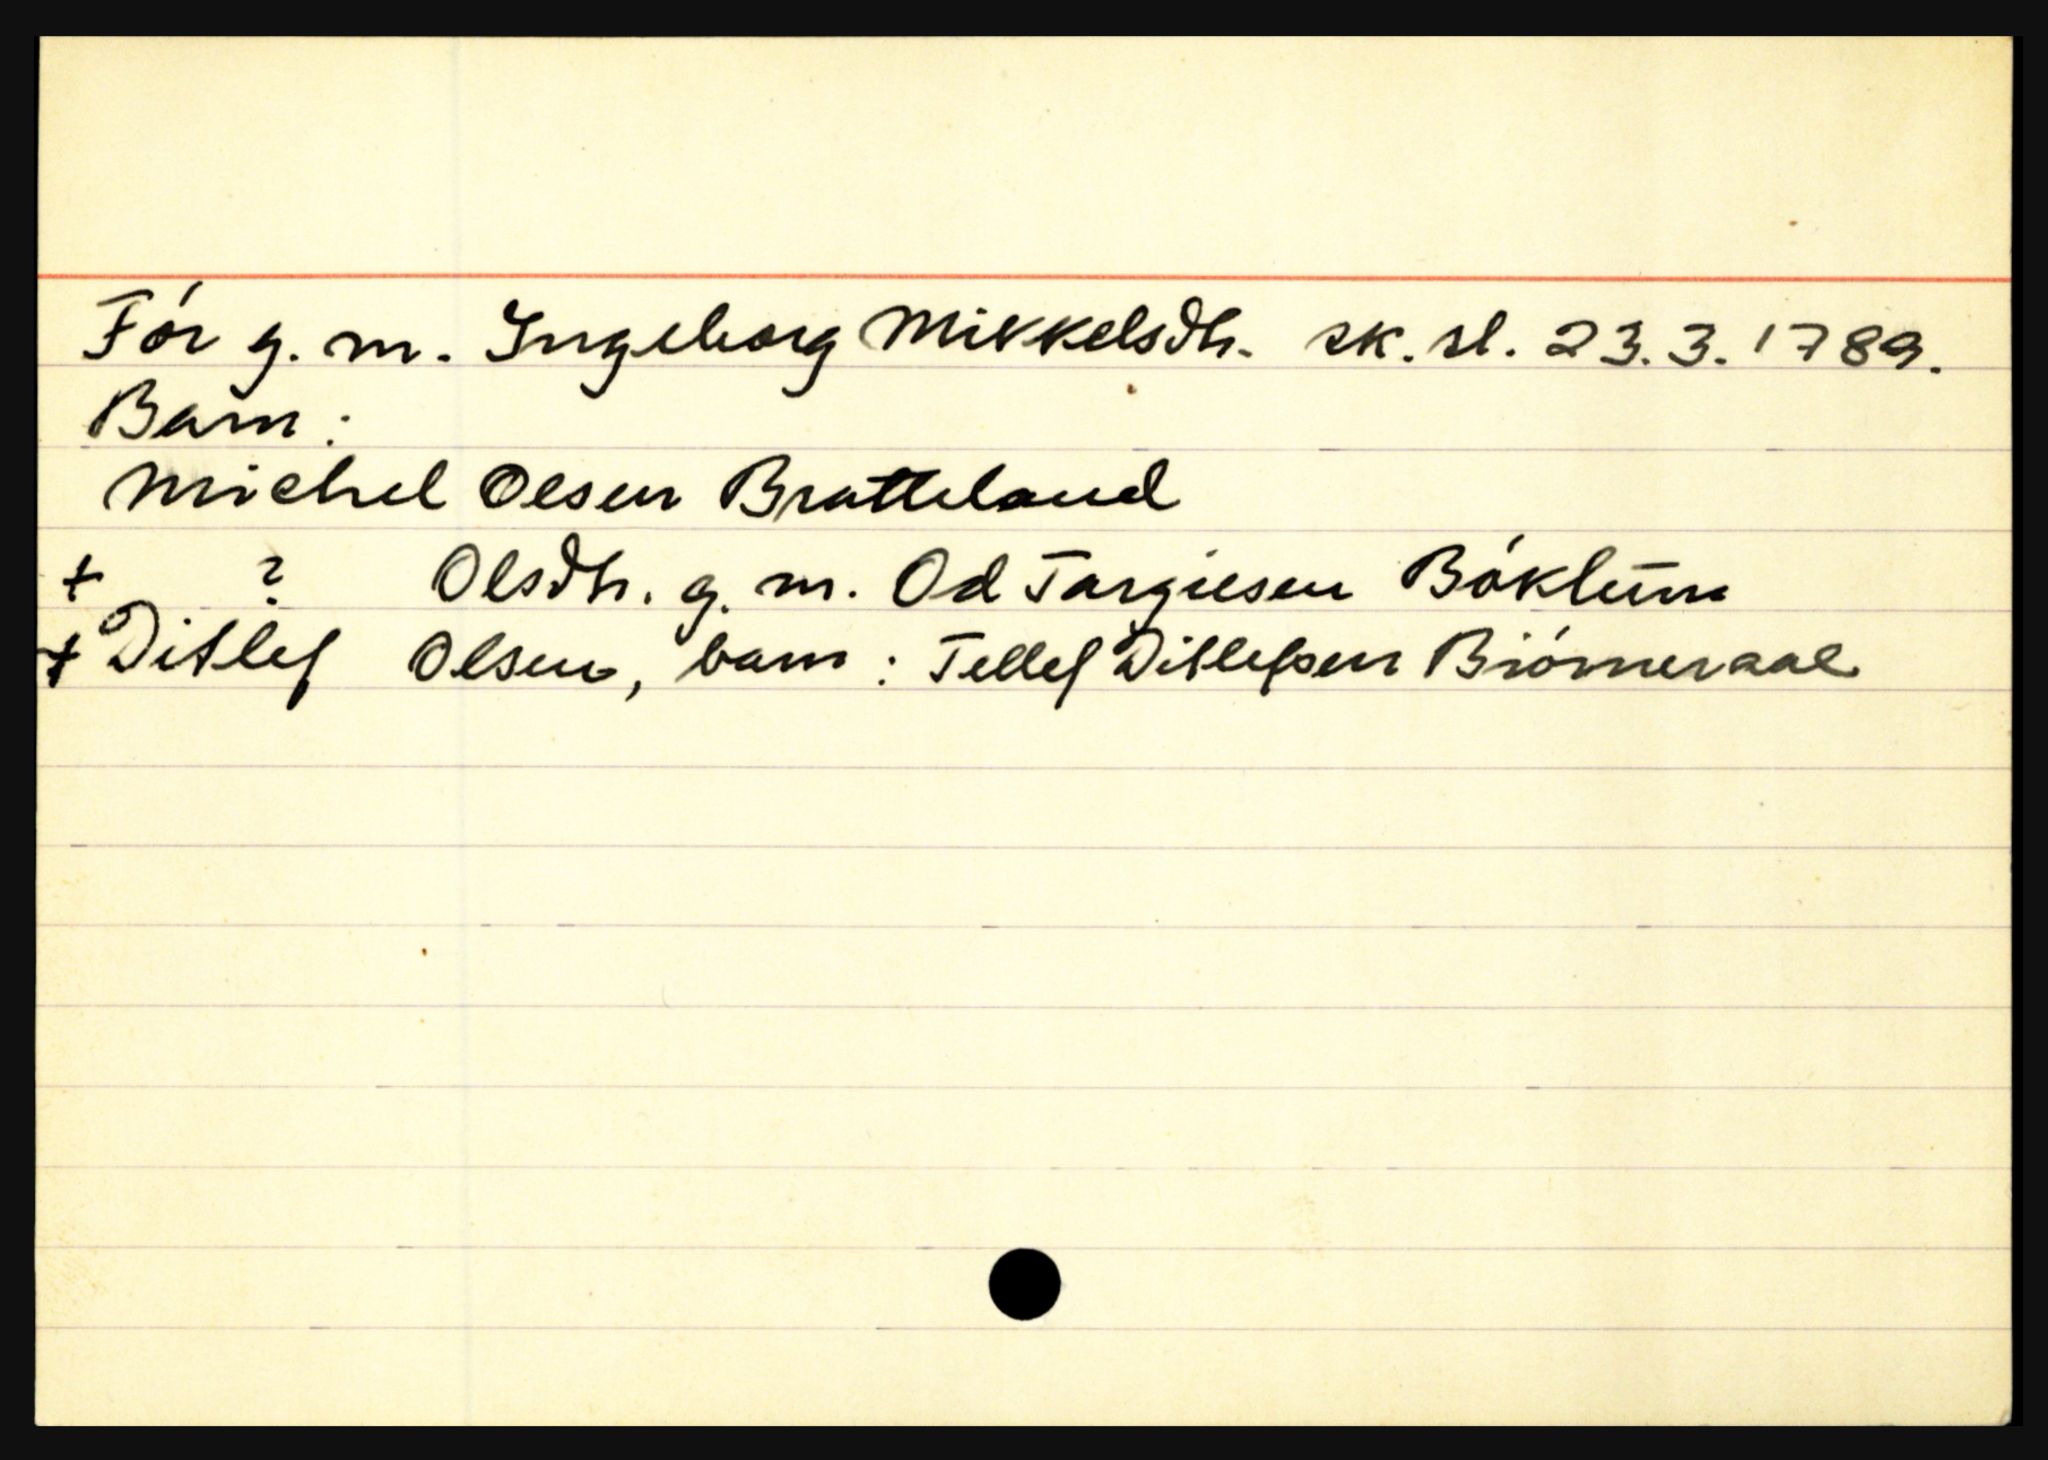 Før g. m. Ingeborg Mikkelsdtr. sk. sl. 23.3.1789.
Barn:
Michel Olsen Bratteland
+ ? Olsdtr. g. m. Od Targiesen Bøklum
+ Ditlef Olsen, barn: Tellef Ditlefsen Biørneraae